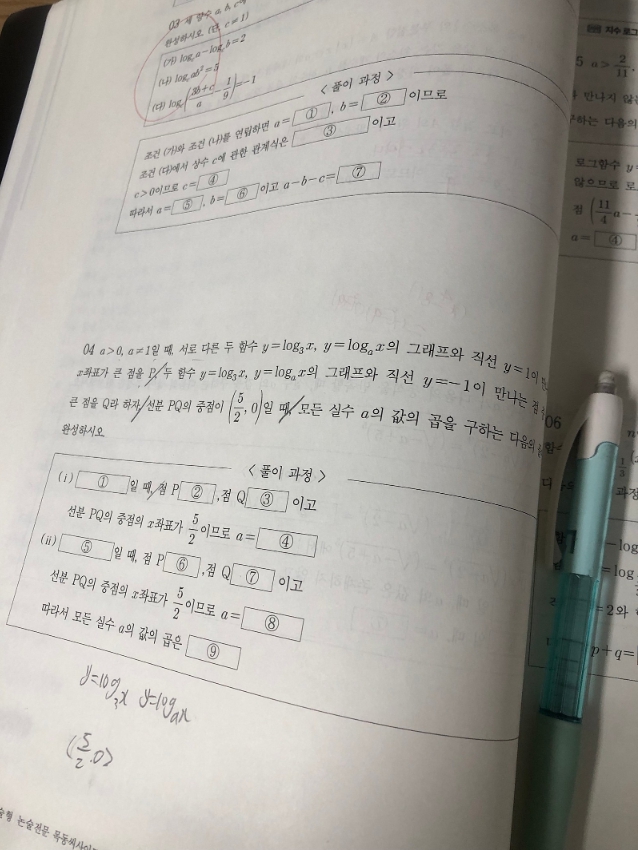 03 세 상수 a, b, c
완성하시오 (단, c≠1)
(가) log_c a − log_c b = 2
(나) log_c ab² = 5
(다) log_c (3b+c/a − 1/9) = −1
< 풀이 과정 >
조건 (가)와 조건 (나)를 연립하면 a= ① , b= ② 이므로
조건 (다)에서 상수 c에 관한 관계식은 ③ 이고
c>0이므로 c= ④
따라서 a= ⑤ , b= ⑥ 이고 a−b−c= ⑦
04 a>0, a≠1일 때, 서로 다른 두 함수 y=log₃x, y=logₐx의 그래프와 직선 y=1이
x좌표가 큰 점을 P, 두 함수 y=log₃x, y=logₐx의 그래프와 직선 y=−1이 만나는 점
큰 점을 Q라 하자 선분 PQ의 중점이 (5/2, 0)일 때, 모든 실수 a의 값의 곱을 구하는 다음의
완성하시오
< 풀이 과정 >
(i) ① 일 때, 점 P ② , 점 Q ③ 이고
선분 PQ의 중점의 x좌표가 5/2 이므로 a= ④
(ii) ⑤ 일 때, 점 P ⑥ , 점 Q ⑦ 이고
선분 PQ의 중점의 x좌표가 5/2 이므로 a= ⑧
따라서 모든 실수 a의 값의 곱은 ⑨
y=log₃x y=logₐx
(5/2, 0)
논술전문
5 a> 2/11
만나지 않는
하는 다음의
로그함수 y
않으므로 로
점 (11/4 a−
a= ④
06
과정
=2와
p+q=